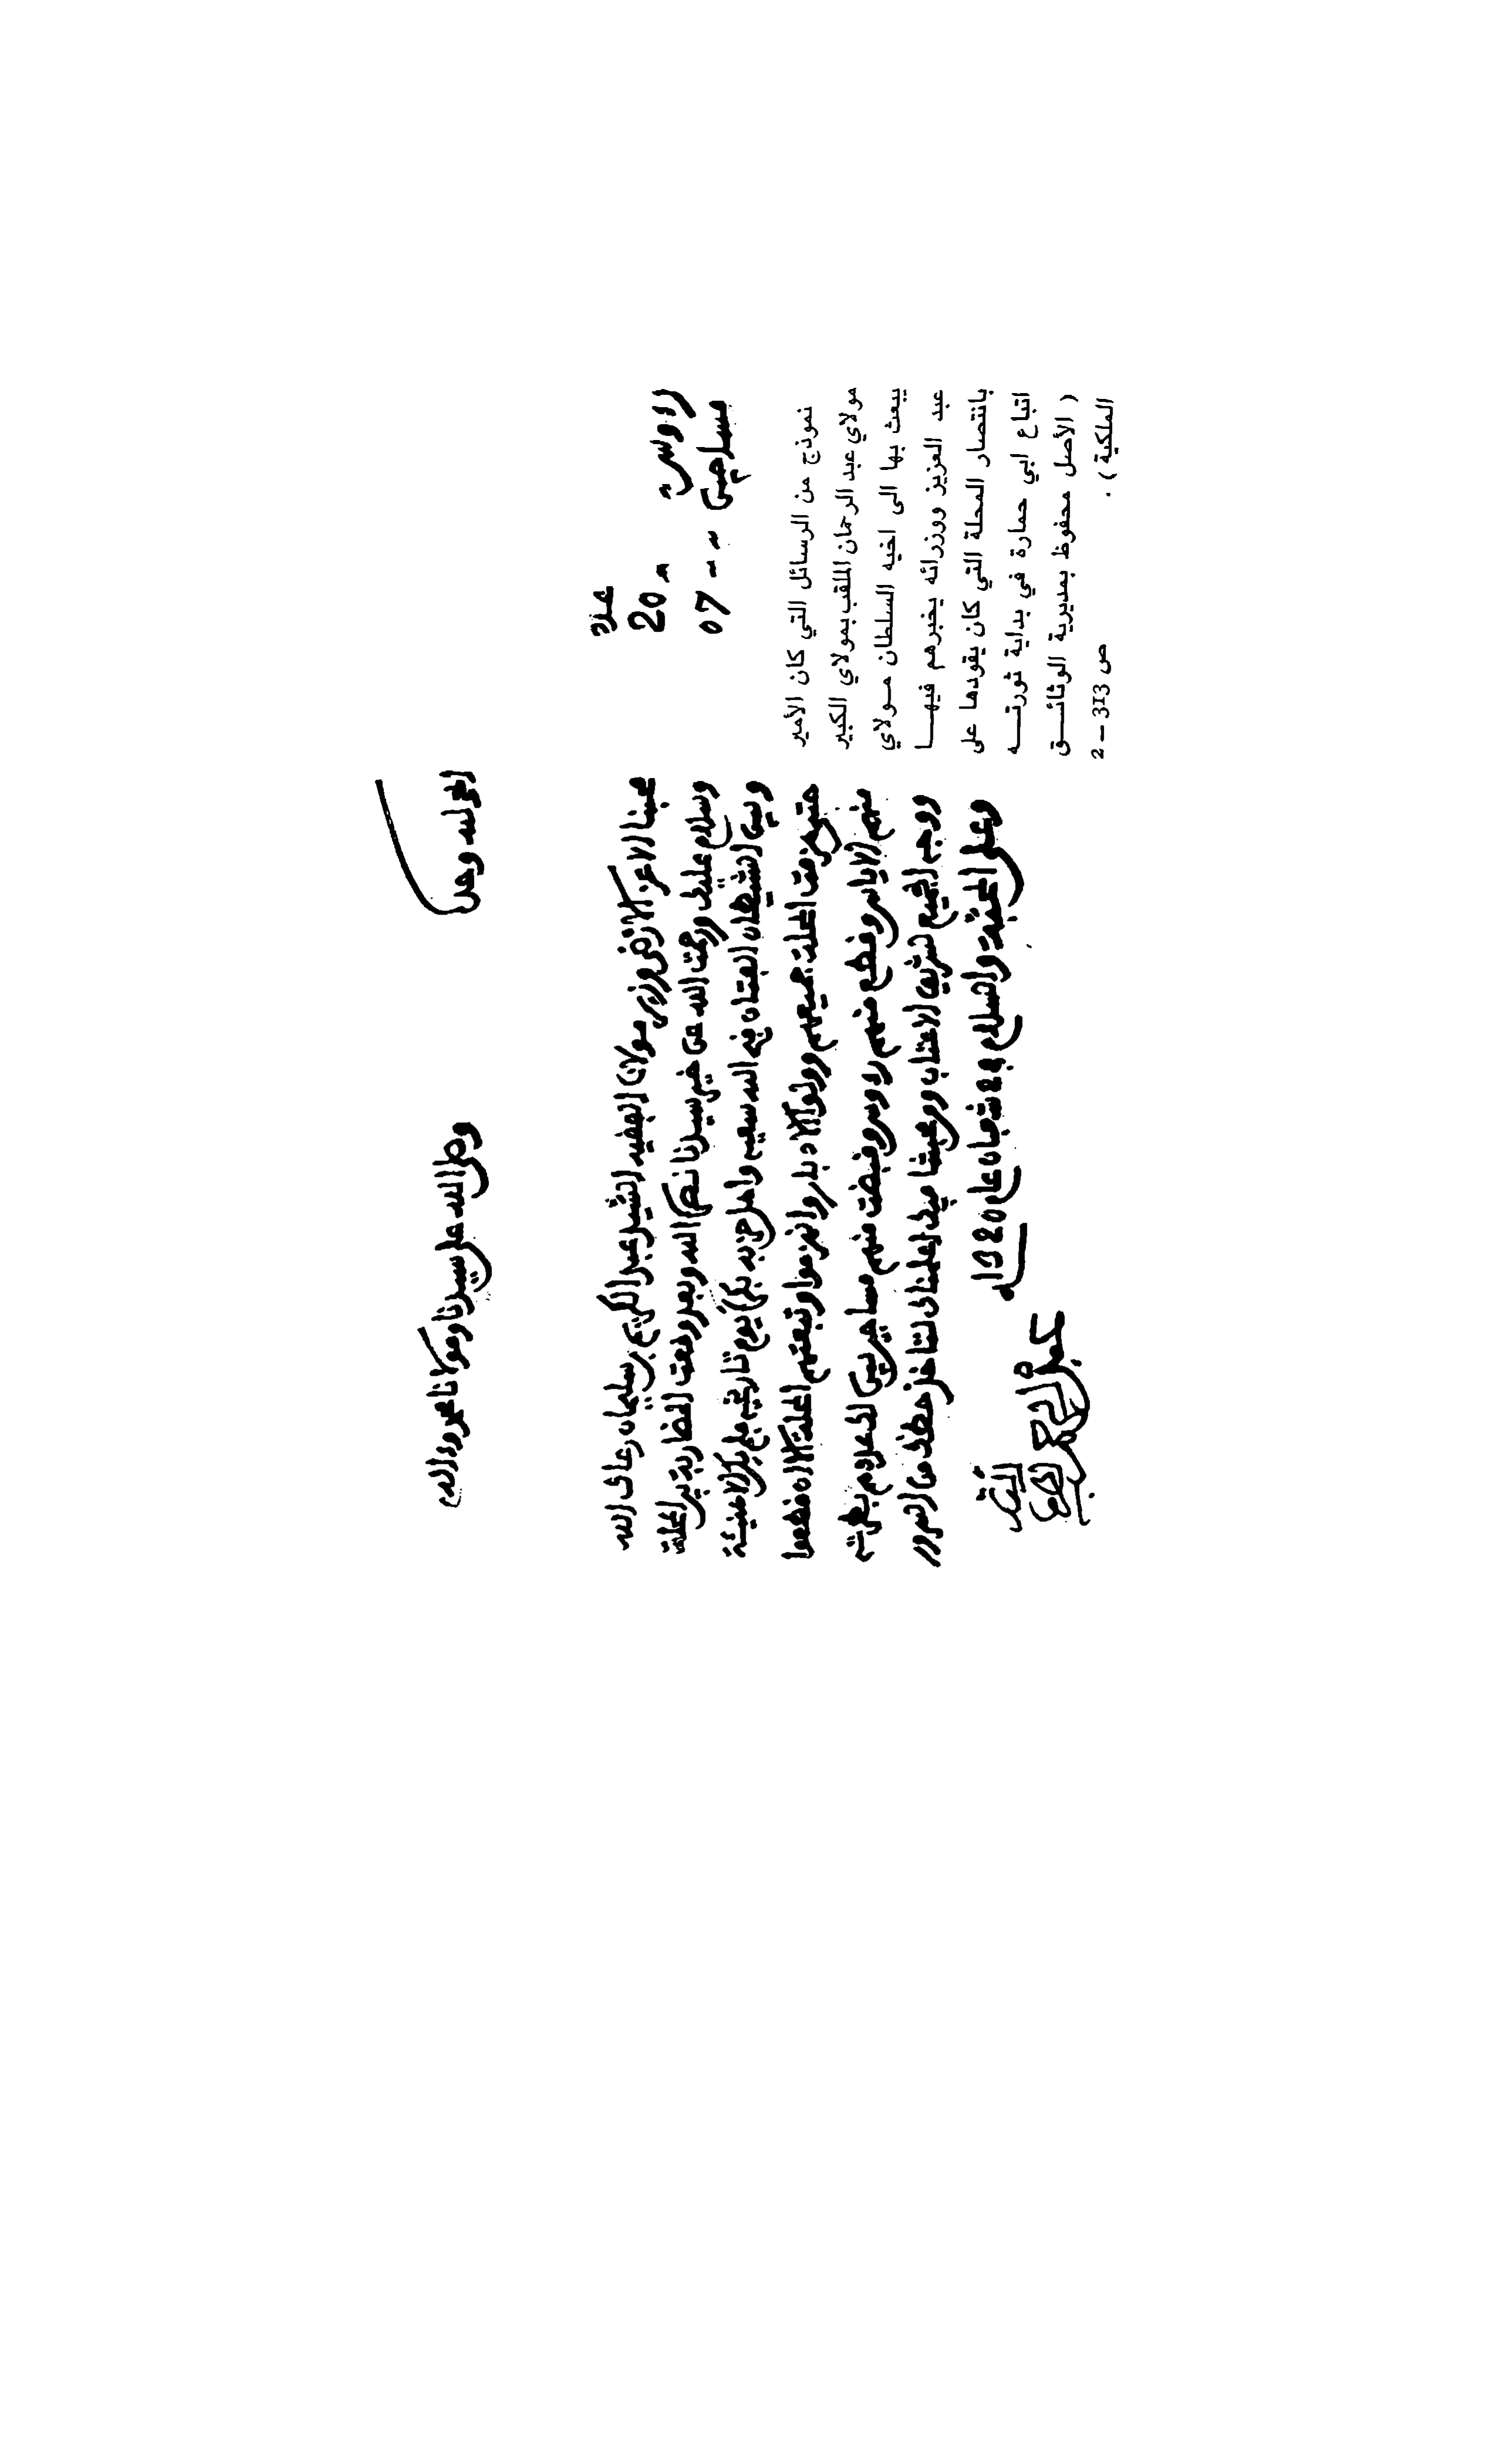 الحمد لله وحده
وصلى الله على سيدنا ومولانا محمد وءاله
محبنا الاعز الارضى وزير مولانا الفقيه السيد عبد الكريم بن سليمان رعاك الله
وسلام عليك ورحمت الله عن خير سيدنا نصره الله وبعد وقعت المضاربة بين المحلة
وبين الشيطان الفتان فيه الله سعيه واهل حزبه بكرة يوم تاريخه فلم يكن الا هنيئة
حتى هزمت المحلة جميعهم وولوا الادبار وانهزموا وتبعتهم المحلة الا ان قطعوا
منهم الاياس وقطع منهم رءوس وقبضت منهم مساجين
ووجه الجميع لشريف الاعتاب ووعيشا فيك اعلمناك لتاخذ حظك من السرور
وعلى المحبة والسلام في شعبان عام 1320
عبد الرحمن
عدد
20 رءوس
07 مساجين
نموذج من الرسائل التي كان الأمير
مولاي عبد الرحمان الملقب بمولاي الكبير
يبعث بها الى اخيه السلطان مـولاي
عبد العزيز ووزرائه يخبرهم فيهـــا
بانتصار المحلة التي كان يقودها على
اتباع ابي حمارة في بداية ثورتـــه
( الأصل محفوظ بمديرية الوثائــق
الملكية ) . ص 313 – 2